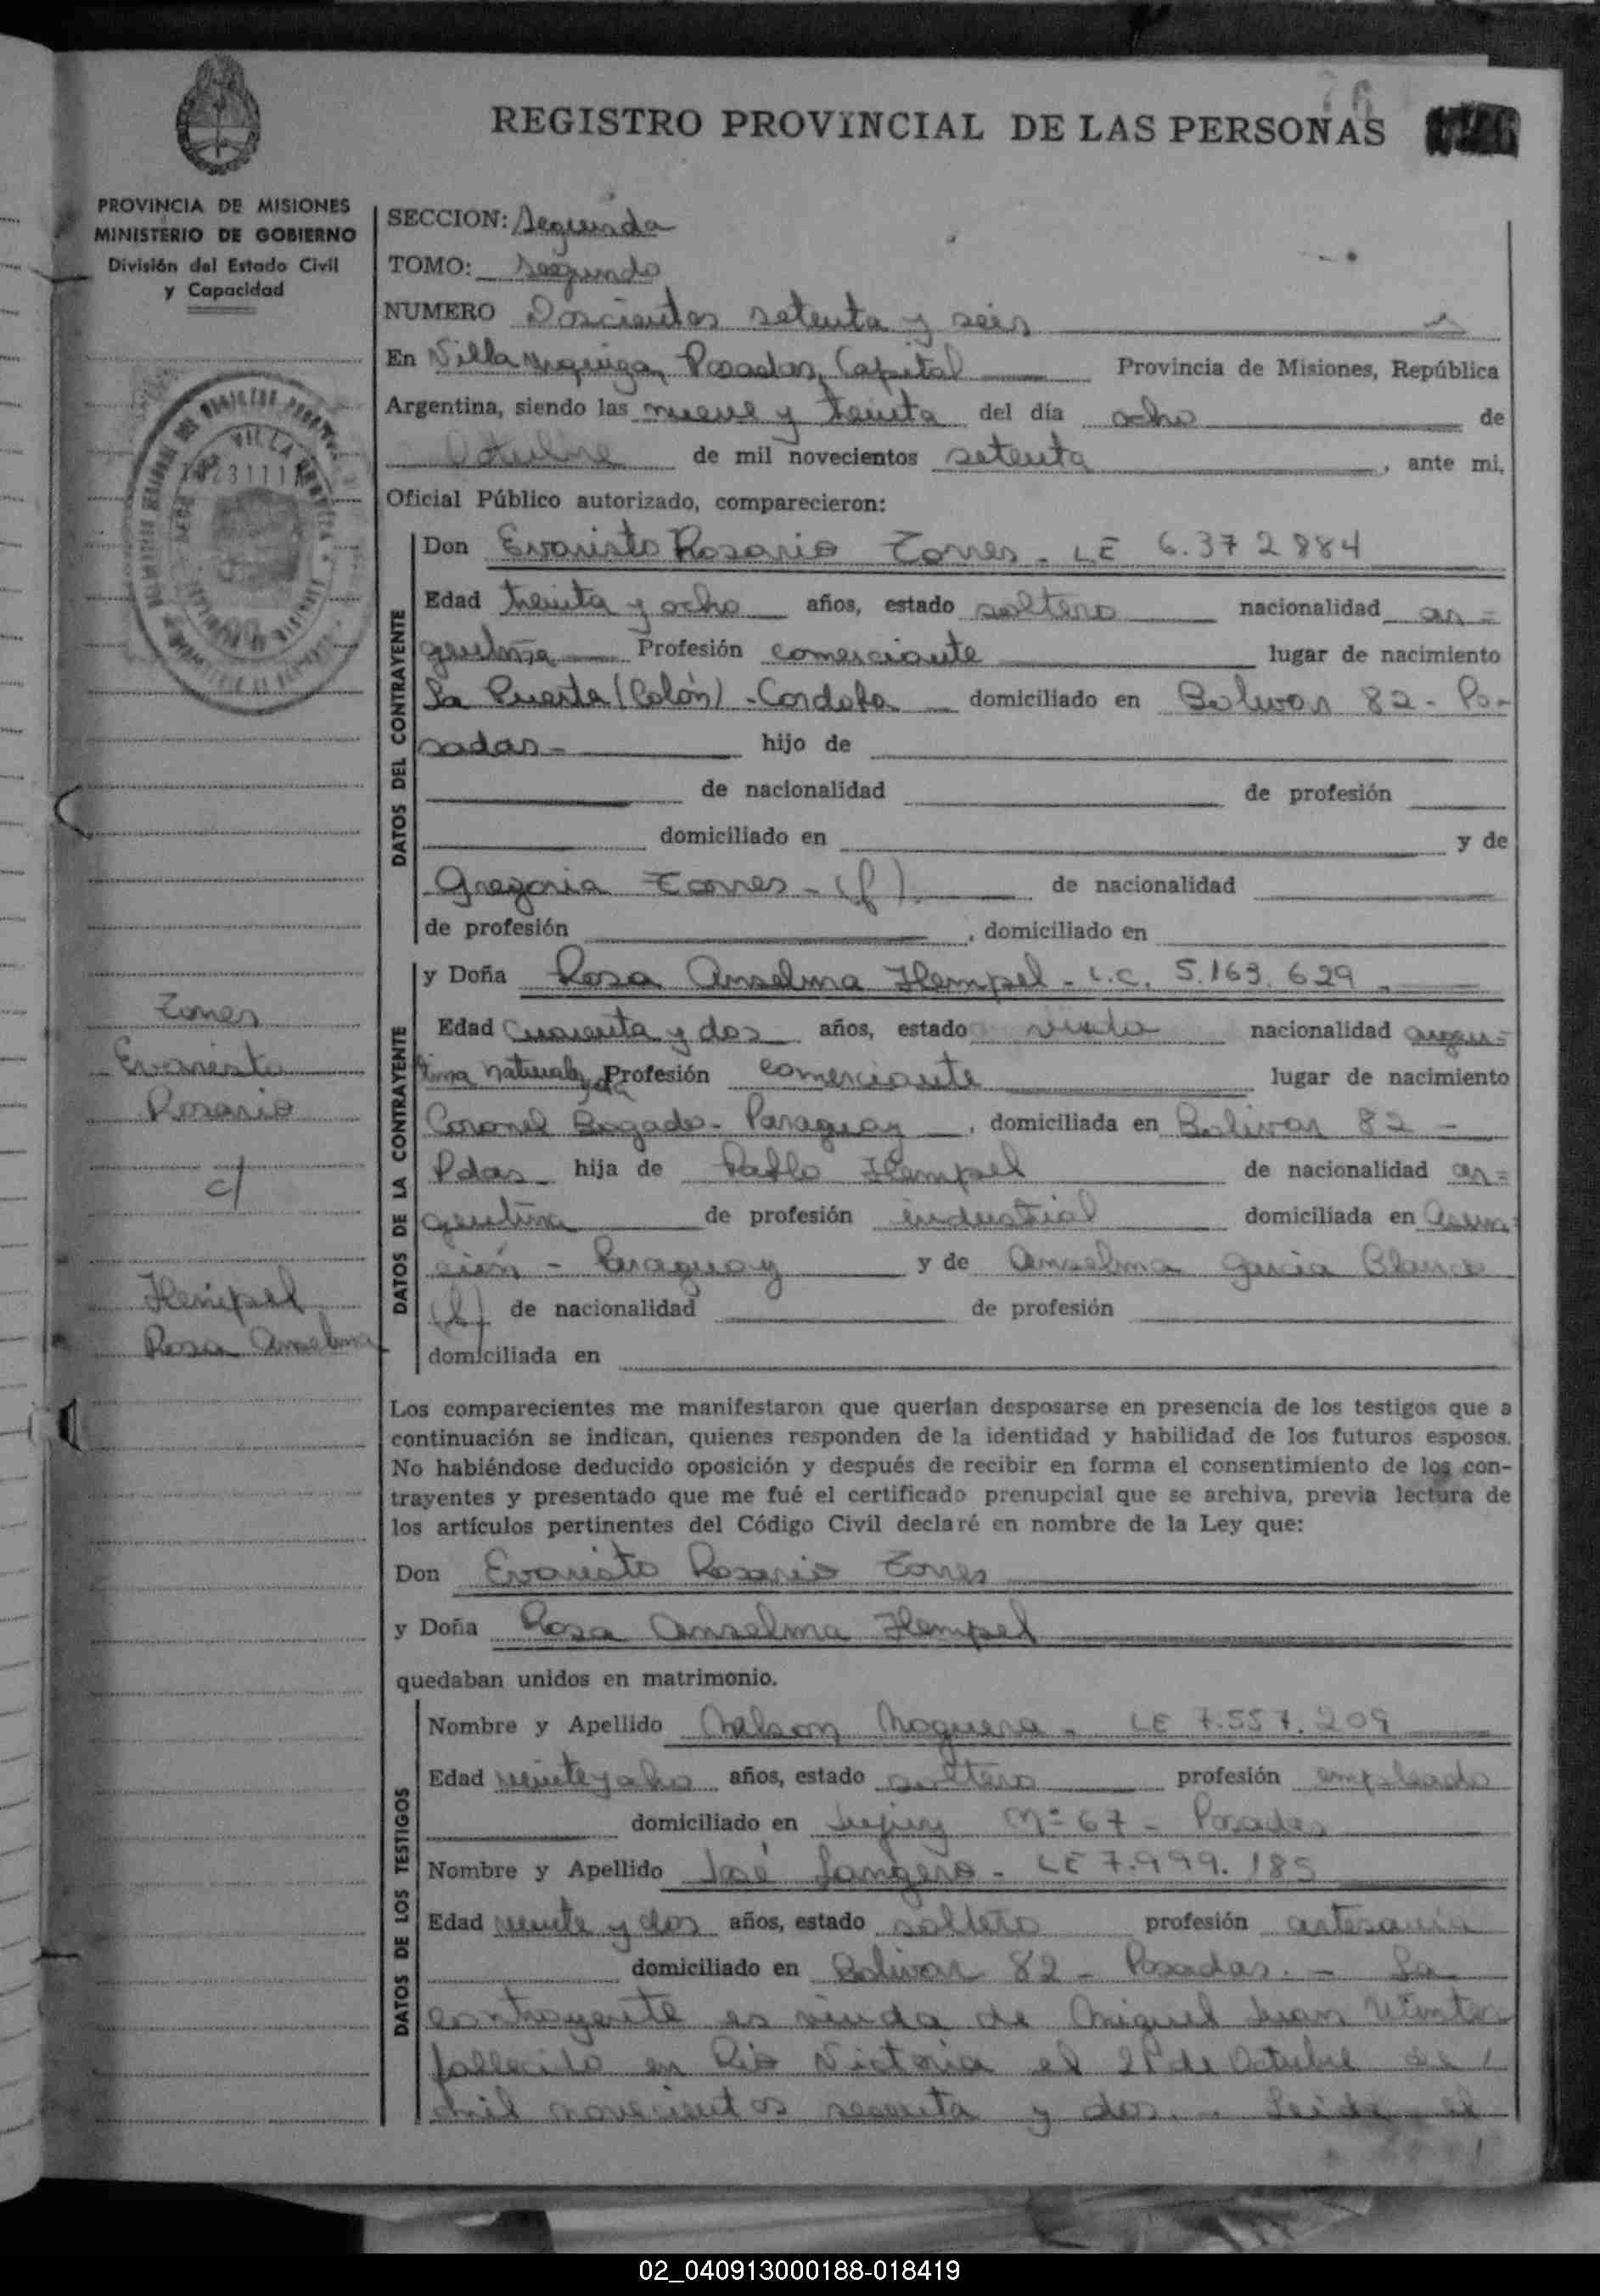 REGISTRO PROVINCIAL DE LAS PERSONAS
PROVINCIA DE MISIONES
MINISTERIO DE GOBIERNO
División del Estado Civil
y Capacidad
SECCION: Segunda
TOMO: segundo
NUMERO Doscientos setenta y seis
En Villa Urquiza, Posadas, Capital Provincia de Misiones, República
Argentina, siendo las nueve y treinta del día ocho de
Octubre de mil novecientos setenta, ante mi,
Oficial Público autorizado, comparecieron:
DATOS DEL CONTRAYENTE
Don Evaristo Rosario Torres - LE 6.372884
Edad treinta y ocho años, estado soltero nacionalidad ar=
gentina Profesión comerciante lugar de nacimiento
La Puerta (Colón) - Cordoba domiciliado en Bolivar 82 - Po-
sadas - hijo de
de nacionalidad de profesión
domiciliado en y de
Gregoria Torres - (f). de nacionalidad
de profesión , domiciliado en
DATOS DE LA CONTRAYENTE
y Doña Rosa Anselma Hempel - L.C. 5.163.629.
Edad Cuarenta y dos años, estado viuda nacionalidad argen=
tina naturalizada Profesión comerciante lugar de nacimiento
Coronel Bogado - Paraguay, domiciliada en Bolivar 82 -
Pdas hija de Pablo Hempel de nacionalidad ar=
gentina de profesión industrial domiciliada en Asun-
ción - Paraguay y de Anselma Garcia Blanco
(f) de nacionalidad de profesión
domiciliada en
Torres
Evaristo
Rosario
c/
Hempel
Rosa Anselma
Los comparecientes me manifestaron que querían desposarse en presencia de los testigos que a
continuación se indican, quienes responden de la identidad y habilidad de los futuros esposos.
No habiéndose deducido oposición y después de recibir en forma el consentimiento de los con-
trayentes y presentado que me fué el certificado prenupcial que se archiva, previa lectura de
los artículos pertinentes del Código Civil declaré en nombre de la Ley que:
Don Evaristo Rosario Torres
y Doña Rosa Anselma Hempel
quedaban unidos en matrimonio.
DATOS DE LOS TESTIGOS
Nombre y Apellido Nelson Noguera - LE 7.557.209
Edad veinte y ocho años, estado soltero profesión empleado
domiciliado en Jujuy Nº 67 - Posadas
Nombre y Apellido José - LE 7.999.185
Edad veinte y dos años, estado soltero profesión artesanía
domiciliado en Bolivar 82 - Posadas. - La
contrayente es viuda de Miguel Juan Winter
fallecido en Rio Victoria el 21 de Octubre de
mil novecientos sesenta y dos. - Leida el
02_040913000188-018419